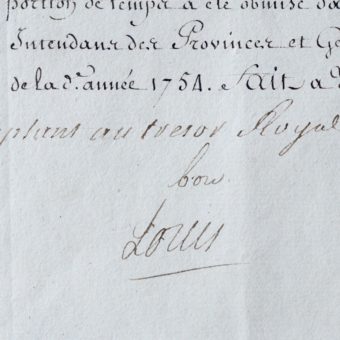 portion de temps a été obmise da
Intendans des Provinces et Gé
de la d.e année 1754. Fait a
ptant au tresor Royal
bon
Louis